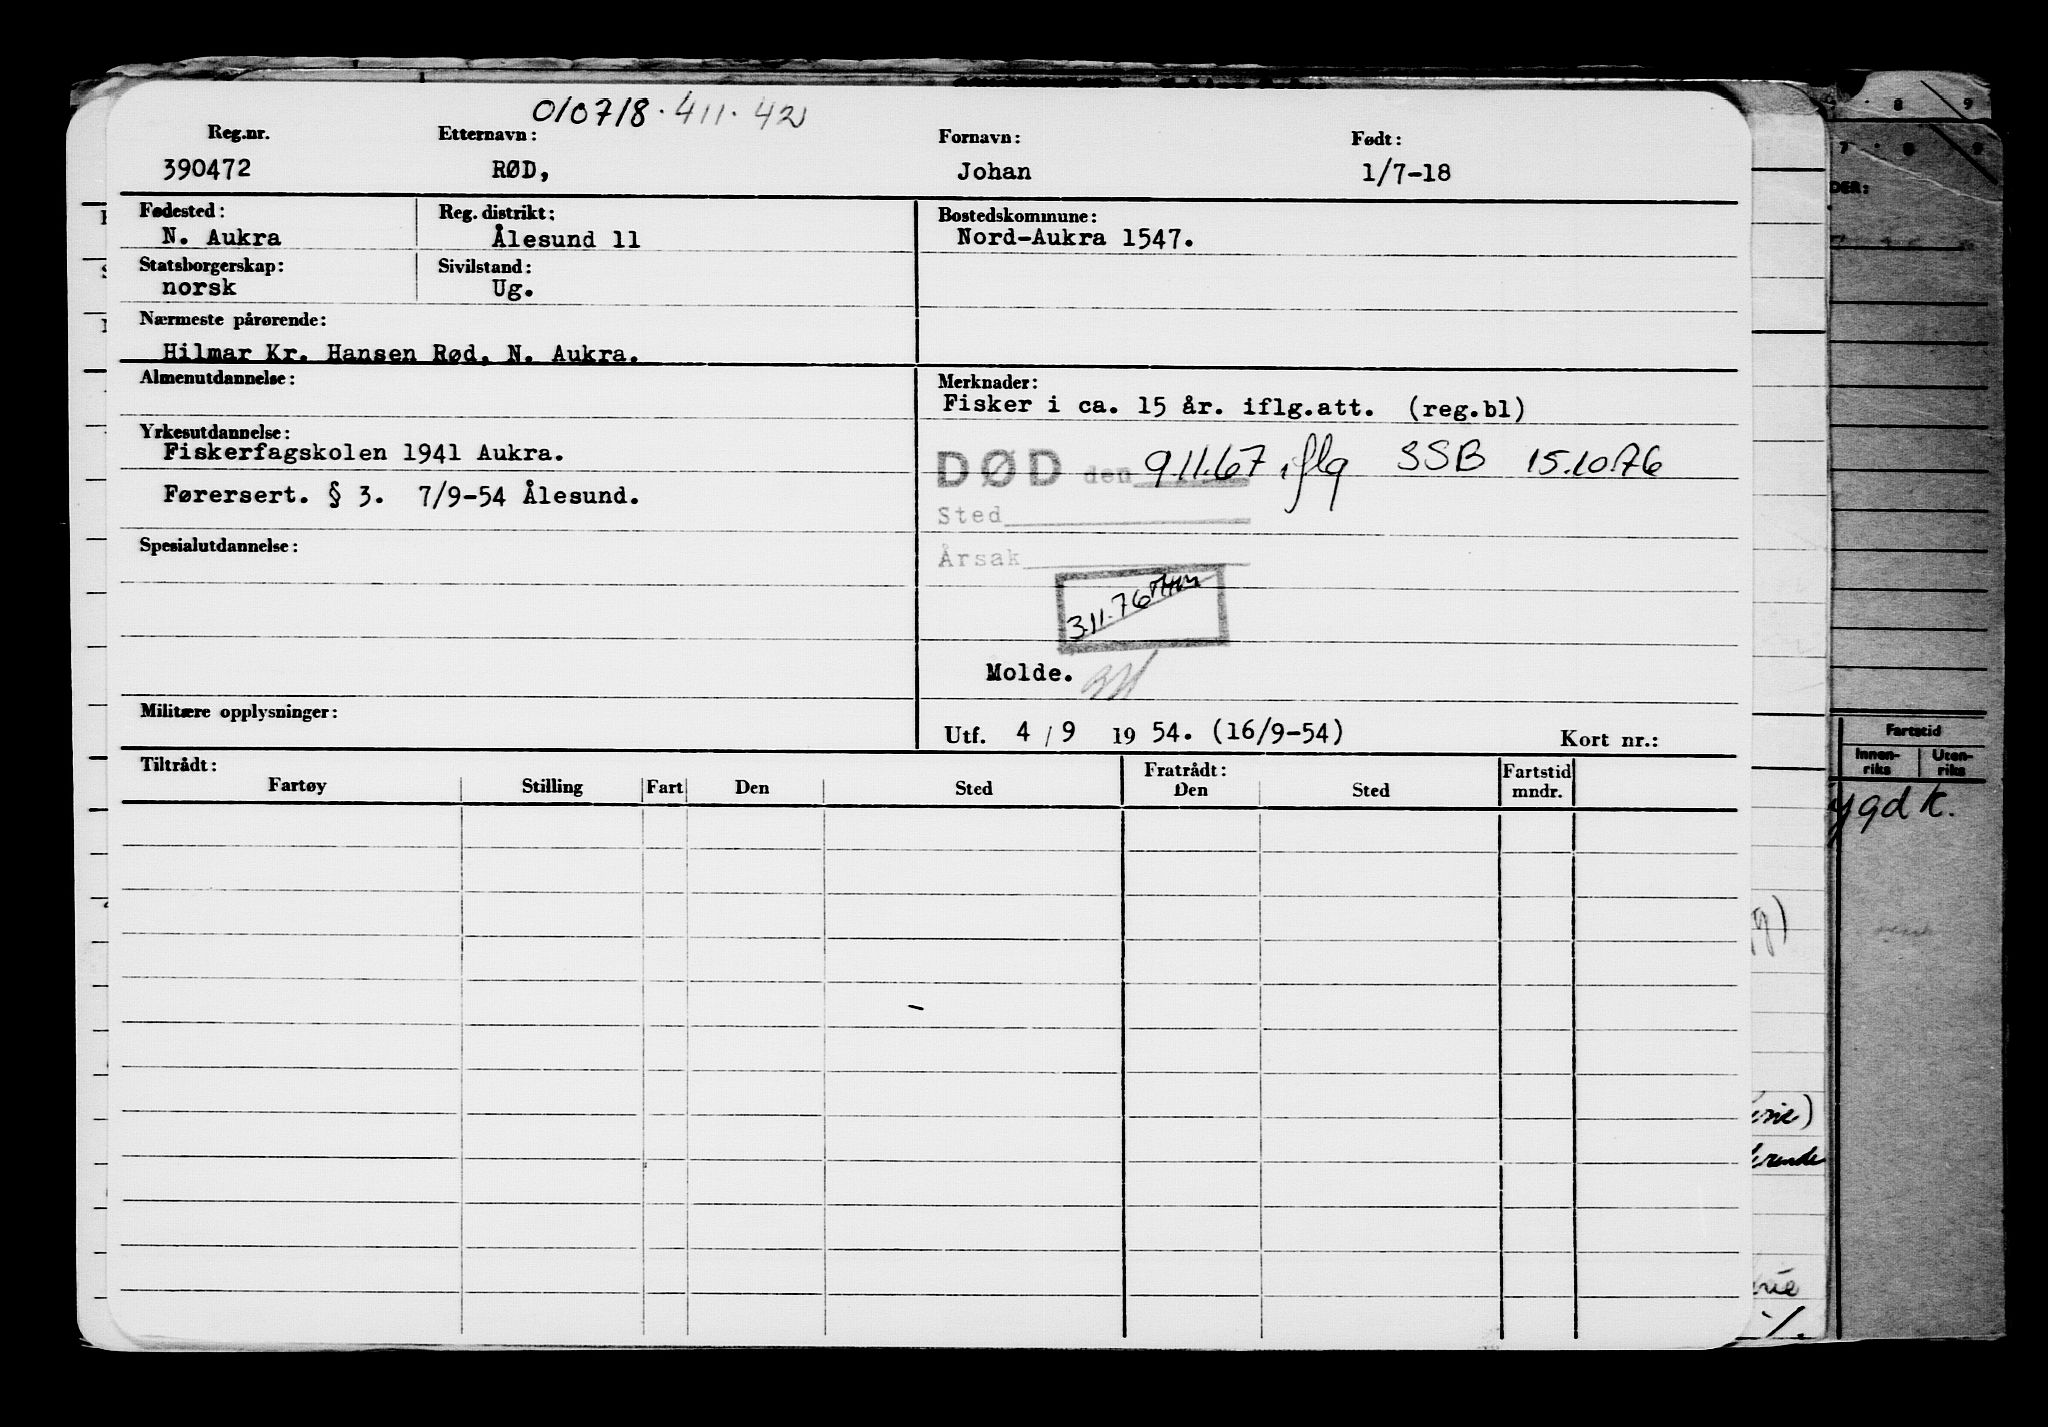 010718.411.42
Reg.nr. Etternavn: Fornavn: Født:
390472 RØD, Johan 1/7-18
Fødested: Reg. distrikt: Bostedskommune:
N. Aukra Ålesund 11 Nord-Aukra 1547.
Statsborgerskap: Sivilstand:
norsk Ug.
Nærmeste pårørende:
Hilmar Kr. Hansen Rød, N. Aukra.
Almenutdannelse: Merknader:
Fisker i ca. 15 år. iflg.att. (reg.bl)
Yrkesutdannelse:
Fiskerfagskolen 1941 Aukra.
DØD den 9.11.67 iflg SSB 15.10.76
Førersert. § 3. 7/9-54 Ålesund.
Sted
Spesialutdannelse:
Årsak
3.11.76
Molde.
Militære opplysninger:
Utf. 4 / 9 19 54. (16/9-54) Kort nr.:
Tiltrådt: Fratrådt: Fartstid
Fartøy Stilling Fart Den Sted Den Sted mndr.
8 9
7 8 9
DER:
Fartstid
Innen-
riks
Uten-
riks
ygd k.